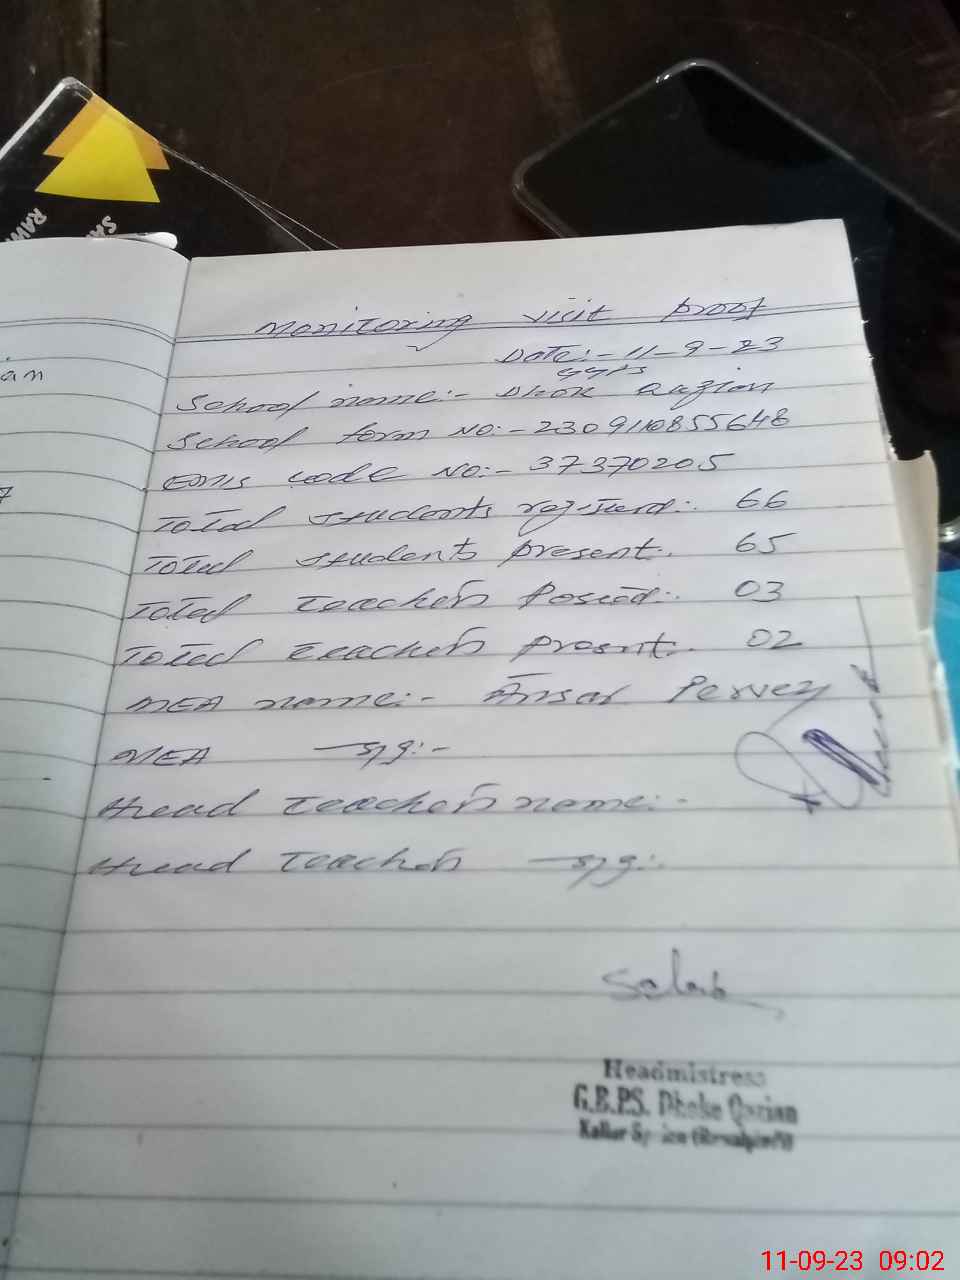 RAW
SA
an
7
Monitoring visit proof
Date:- 11-9-23
School name:- Dhok Qazian
School form No:- 2309110855648
EMIS code No:- 37370205
Total students registerd:. 66
Total students present:. 65
Total Teachers Posted:. 03
Total teachers present:. 02
MEA name:- Ansar Pervez
MEA sig:-
Head teacher name:-
Head Teacher sig:.
Headmistress
G.B.PS. Dhoke Qazian
Kallar
11-09-23 09:02